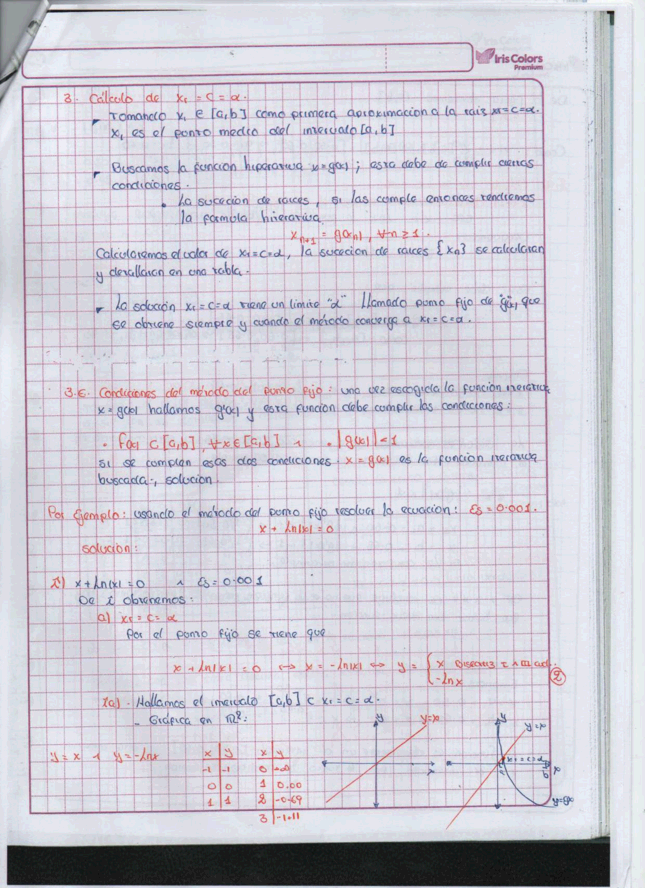 IrisColors
Premium
3.- Cálculo de xₜ = c = α.
Tomando x₁ ∈ [a,b] como primera aproximación a la raiz xₜ=c=α.
x₁ es el punto medio del intervalo [a,b]
Buscamos la función hiperativa x=g(x) ; esta debe de cumplir ciertas
condiciones.
• La sucecion de raices, si las cumple entonces tendremos
la formula hiterativa.
xₙ₊₁ = g(xₙ), ∀n≥1.
Calcularemos el valor de xₜ=c=α, la sucecion de raices {xₙ} se calcularan
y detallaran en una tabla.
La solución xₜ=c=α tiene un limite "α" llamado punto fijo de "g(x)", que
se obtiene siempre y cuando el método converga a xₜ=c=α.
3.E. Condiciones del método del punto fijo: una vez escogida la función iterativa
x=g(x) hallamos g'(x) y esta función debe cumplir las condiciones:
• f(x) ⊂ [a,b], ∀x∈[a,b] ∧ • |g(x)|<1
si se cumplen esas dos condiciones x=g(x) es la función iterativa
buscada., solución
Por Ejemplo: usando el método del punto fijo resolver la ecuación: Es=0.001.
x + Ln(x)=0
solución:
I) x+Ln(x)=0 ∧ Es=0.001
De I obtenemos:
a) xₜ=c=α
Por el punto fijo se tiene que
x + Ln(x) =0 ↔ x=-Ln(x) ↔ y = { x
-Lnx
2
Ia) - Hallamos el intervalo [a,b] ⊂ xₜ=c=α.
- Gráfica en R²:
y=x ∧ y=-Lnx
x y x y
-1 -1 0 +∞
0 0 1 0.00
1 1 2 -0.69
3 -1.11
y y=x x
y y=x xₜ=c=α b x